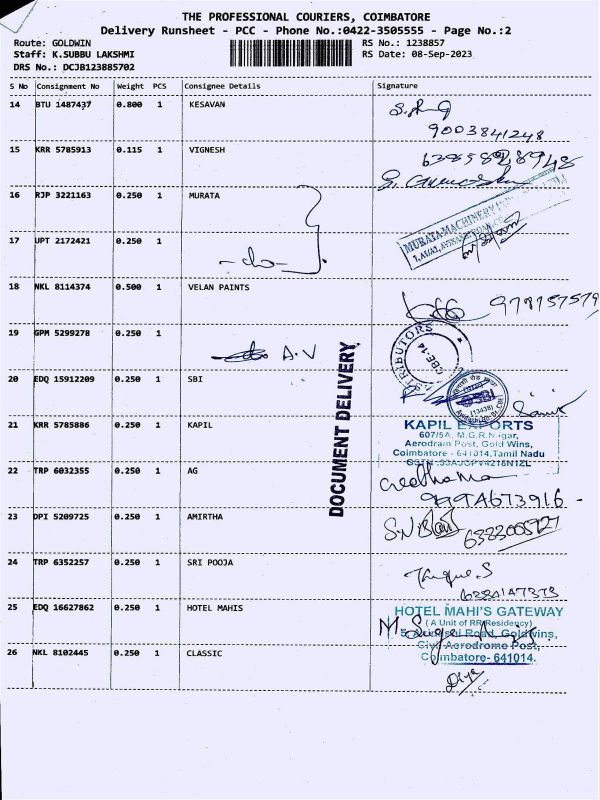 THE PROFESSIONAL COURIERS, COIMBATORE
Delivery Runsheet - PCC - Phone No.:0422-3505555 - Page No.:2
Route: GOLDWIN
RS No.: 1238857
Staff: K.SUBBU LAKSHMI
RS Date: 08-Sep-2023
DRS No.: DCJB123885702
S No Consignment No Weight PCS Consignee Details Signature
14 BTU 1487437 0.800 1 KESAVAN
9003841248
15 KRR 5785913 0.115 1 VIGNESH
16 RJP 3221163 0.250 1 MURATA
MURATA MACHINERY
17 UPT 2172421 0.250 1
-do-
18 NKL 8114374 0.500 1 VELAN PAINTS
978157579
19 GPM 5299278 0.250 1
A.V
CBE-14
20 EDQ 15912209 0.250 1 SBI
SBI
DOCUMENT DELIVERY
21 KRR 5785886 0.250 1 KAPIL
KAPIL EXPORTS
607/5A, M.G.R.Nagar,
Aerodram Post, Gold Wins,
Coimbatore - 641014,Tamil Nadu
22 TRP 6032355 0.250 1 AG
9994673916 -
23 DPI 5209725 0.250 1 AMIRTHA
24 TRP 6352257 0.250 1 SRI POOJA
25 EDQ 16627862 0.250 1 HOTEL MAHIS
HOTEL MAHI'S GATEWAY
(A Unit of RR Residency)
Road, Goldwins,
Civil Aerodrome Post,
Coimbatore- 641014.
26 NKL 8102445 0.250 1 CLASSIC